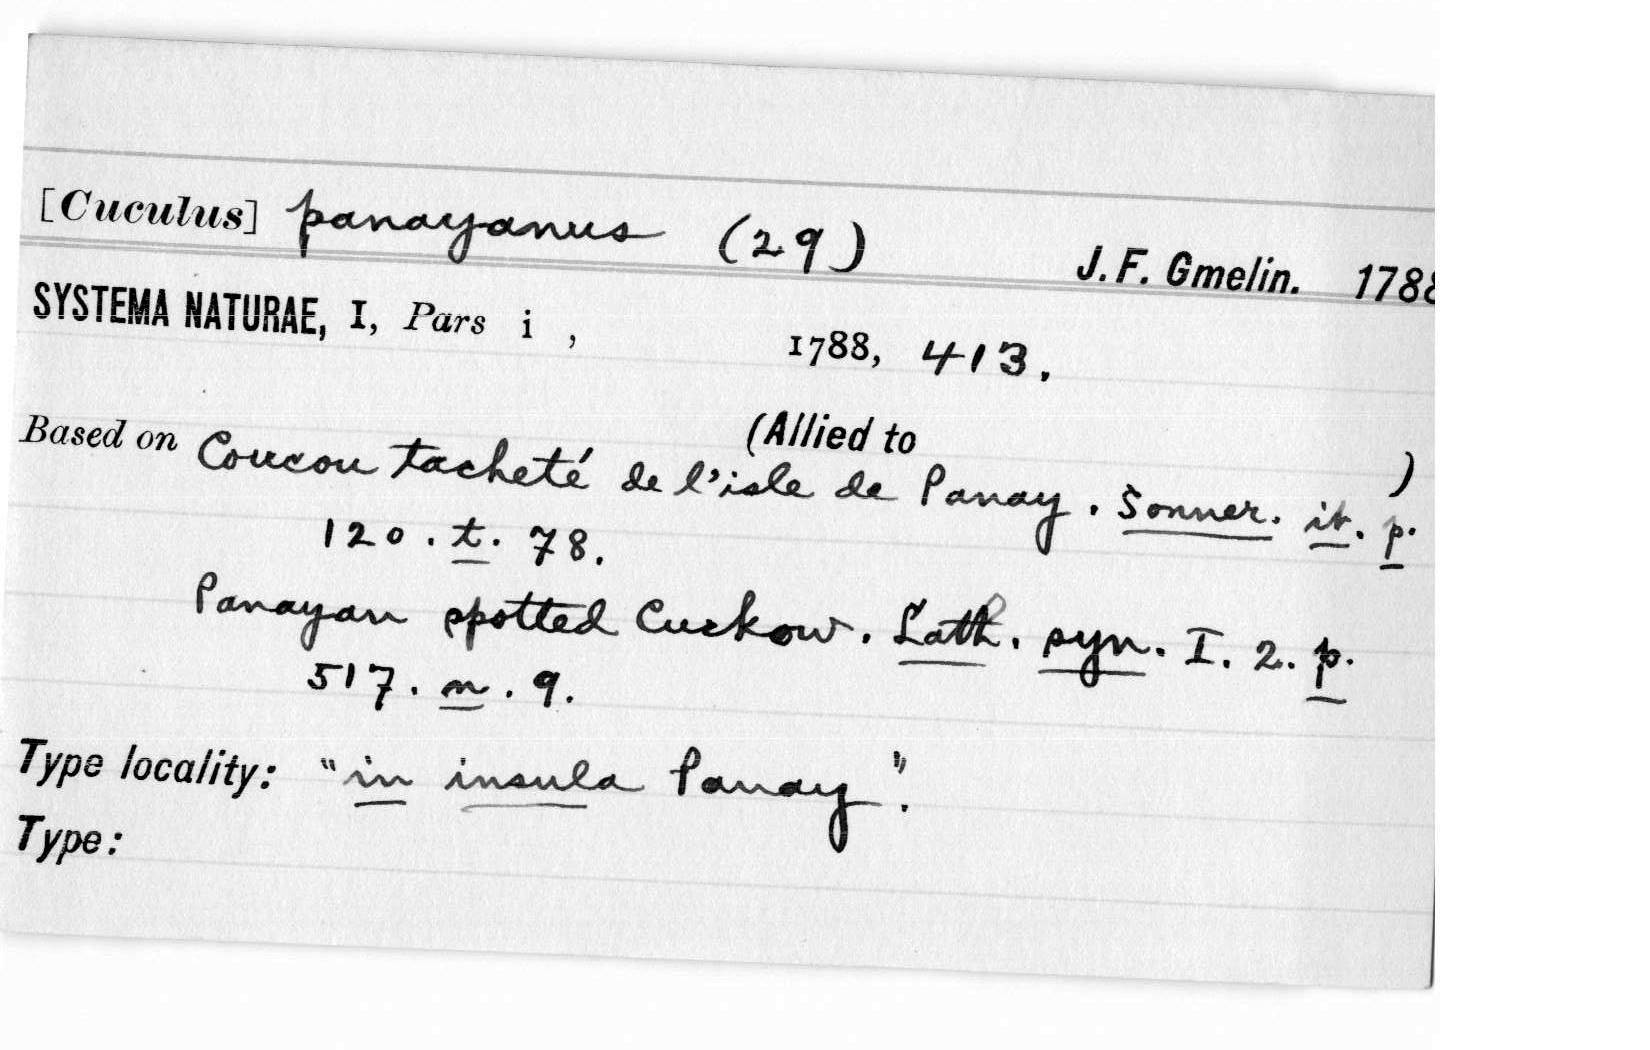 [Cuculus] panayanus (29) J. F. Gmelin. 1788
SYSTEMA NATURAE, I, Pars i , 1788, 413.
(Allied to )
Based on Coucou tacheté de l'isle de Panay. Sonner. it. p.
120. t. 78.
Panayan spotted Cuckow. Lath. syn. I. 2. p.
517. n. 9.
Type locality: "in insula Panay".
Type: